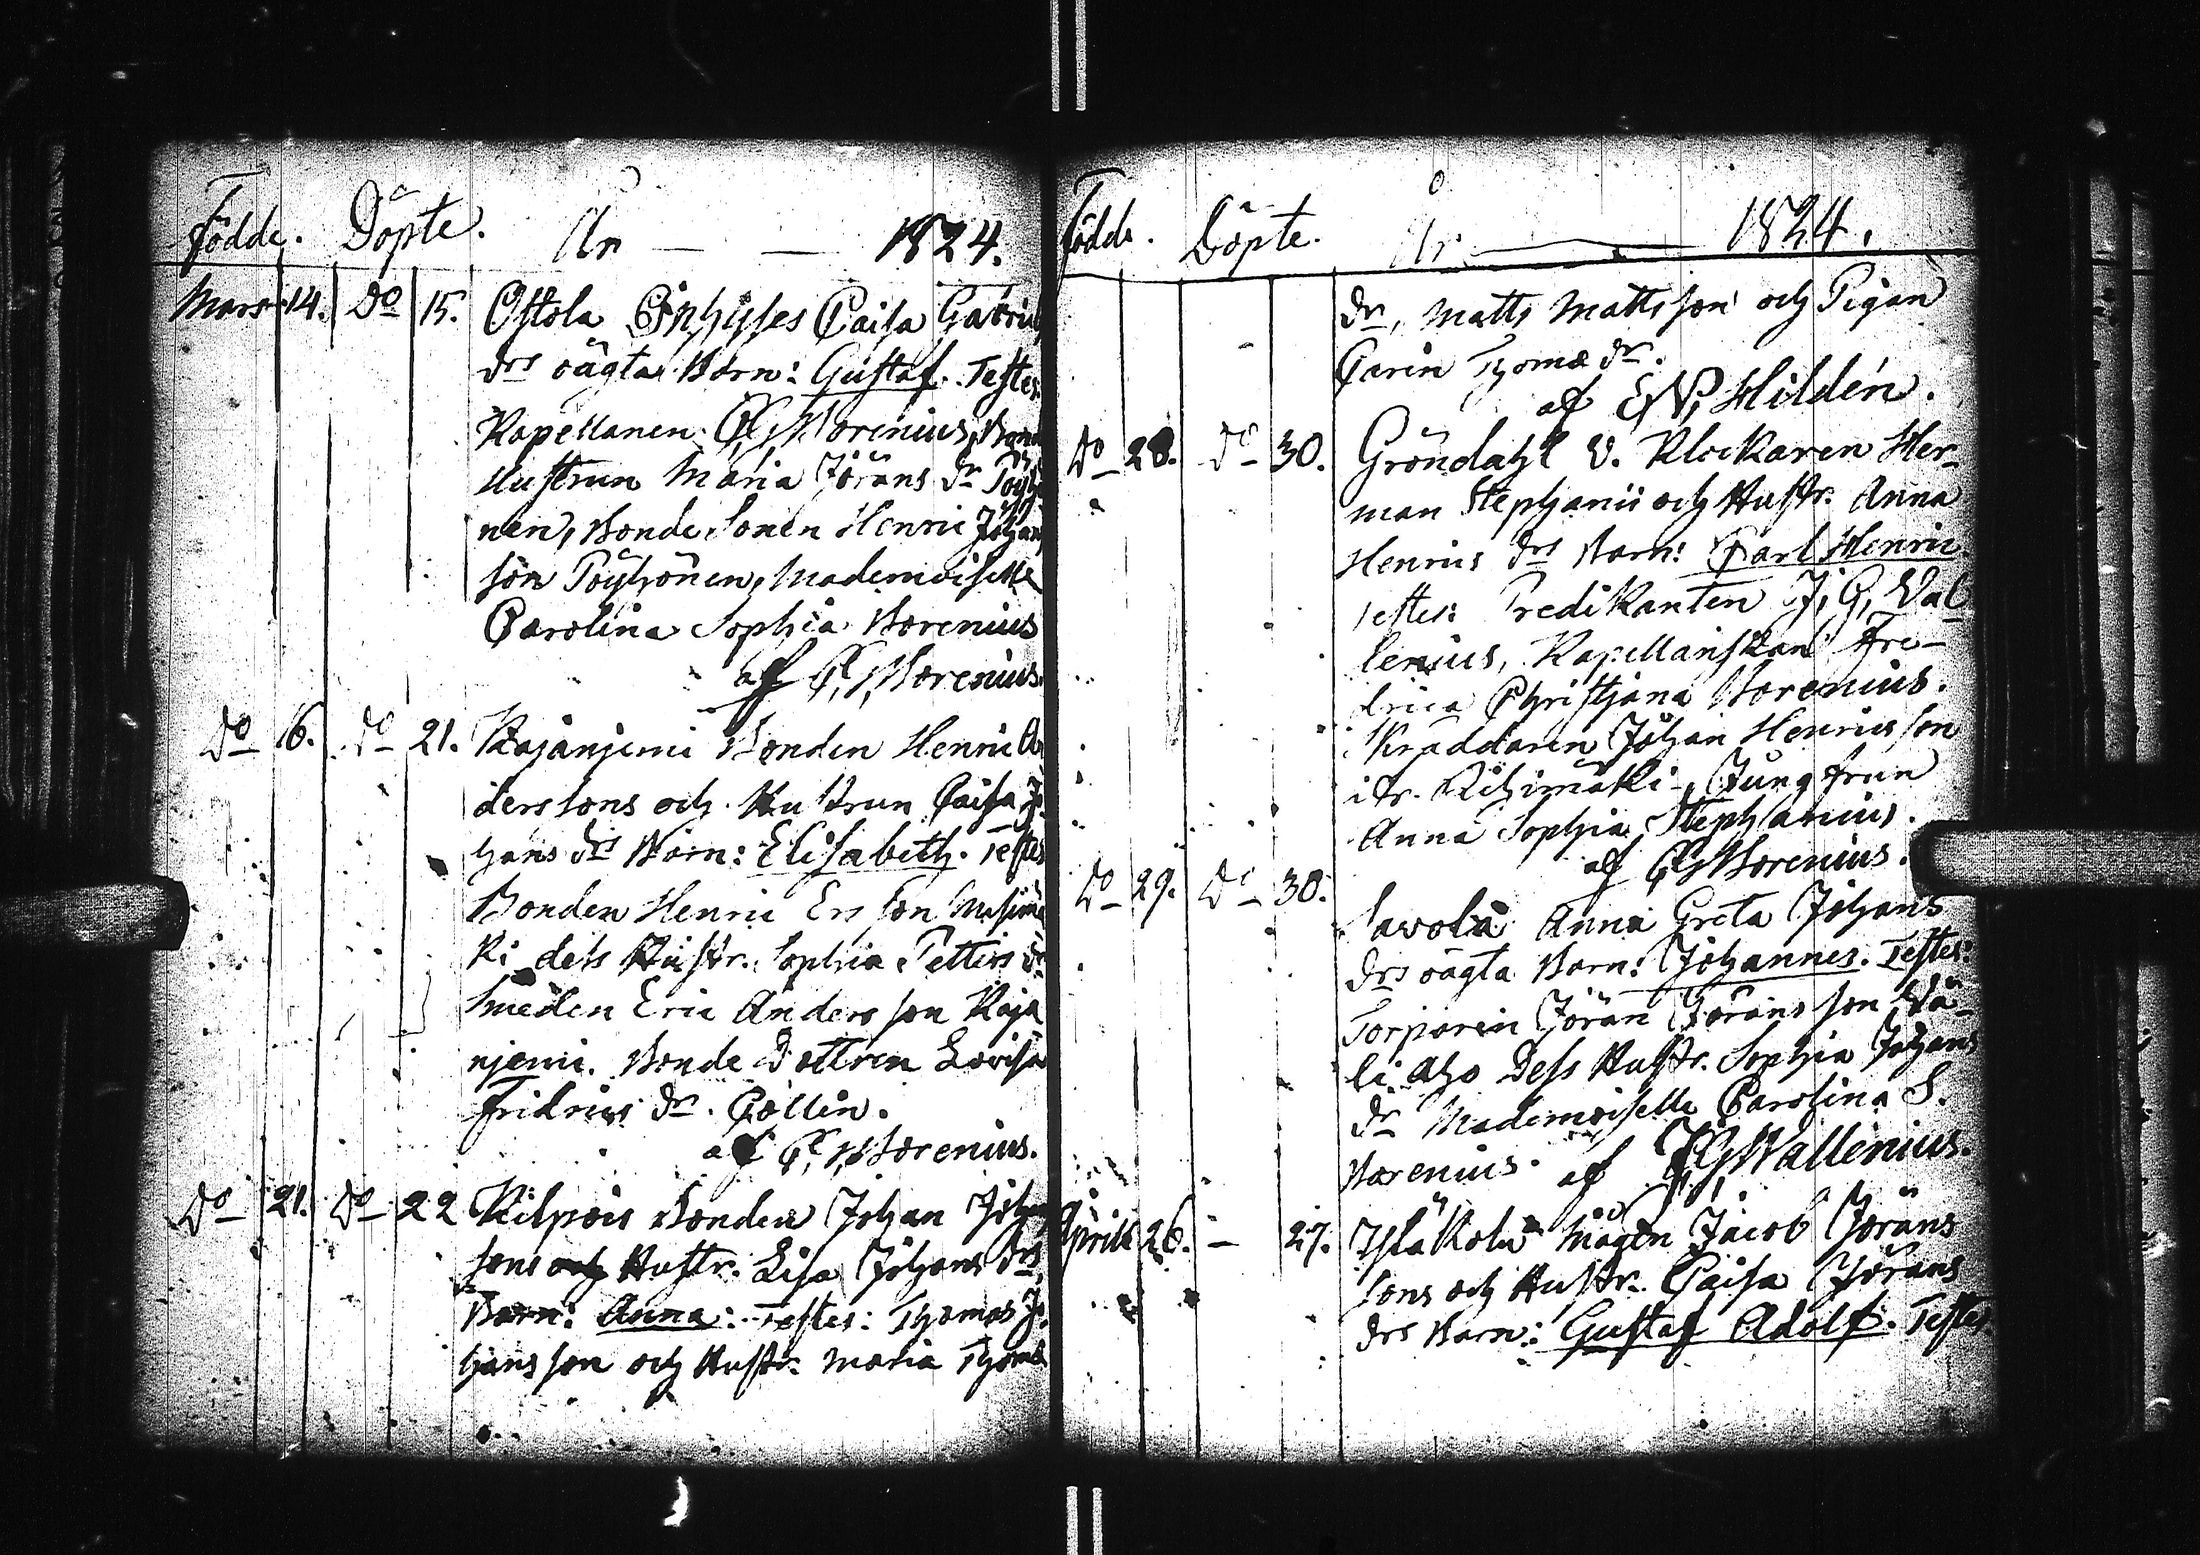 Födde. Döpte. År — — 1824.
Mars 14. Do 15. Ostola Inhyses Caisa Gabriels
drs oägta Barn: Gustaf. Testes:
Kapellanen C. G. Borenius, Bond
Hustrun Maria Jörans dr Pöyhö
nen, Bonde Sonen Henric Johans
son Pöyhönen, Mademoiselle
Carolina Sophia Borenius
af C. G. Borenius.
Do 16. Do 21. Kajanjemi Bonden Henric An
derssons och Hustrun Caisa Jo
hans drs Barn: Elisabeth. Testes
Bonden Henric Ersson
ki dess Hustr. Sophia Petters dr
Smeden Eric Andersson Kaja
njemi. Bonde Dottren Lovisa
Fridrics dr. Collin.
af C. G. Borenius.
Do 21. Do 22 Kilpois Bonden Johan Johans
sons och Hustr. Lisa Johans drs
Barn: Anna: Testes: Thomas Jo
hansson och Hustr. Maria Thomæ
Födde. Döpte. År — 1824.
dr, Matts Mattsson och Pigan
Carin Thomæ dr.
af Hildén.
Do 28. Do 30. Gröndahl V. Klockaren Her-
man Stephanii och Hustr. Anna
Henrics drs Barn: Carl Henric
Testes: Predikanten J. G. Wal
lenius, Kapellanskan Fre-
drica Christjana Borenius.
Kräddaren Johan Henricsson
ifr. Riihimäki, Jungfrun
Anna Sophia Stephanius.
af C. G. Borenius.
Do 29. Do 30. Savola Anna Greta Johans
drs oägta Barn: Johannes. Testes:
Torparen Jöran Jöransson Wä-
li Aho Dess Hustr. Sophia Johans
dr Mademoiselle Carolina S.
Borenius. af J. G. Wallenius.
Aprill 26. — 27. Ylä Kolu Mågen Jacob Jörans
sons och Hustr. Caisa Jörans
drs Barn: Gustaf Adolf. Testes